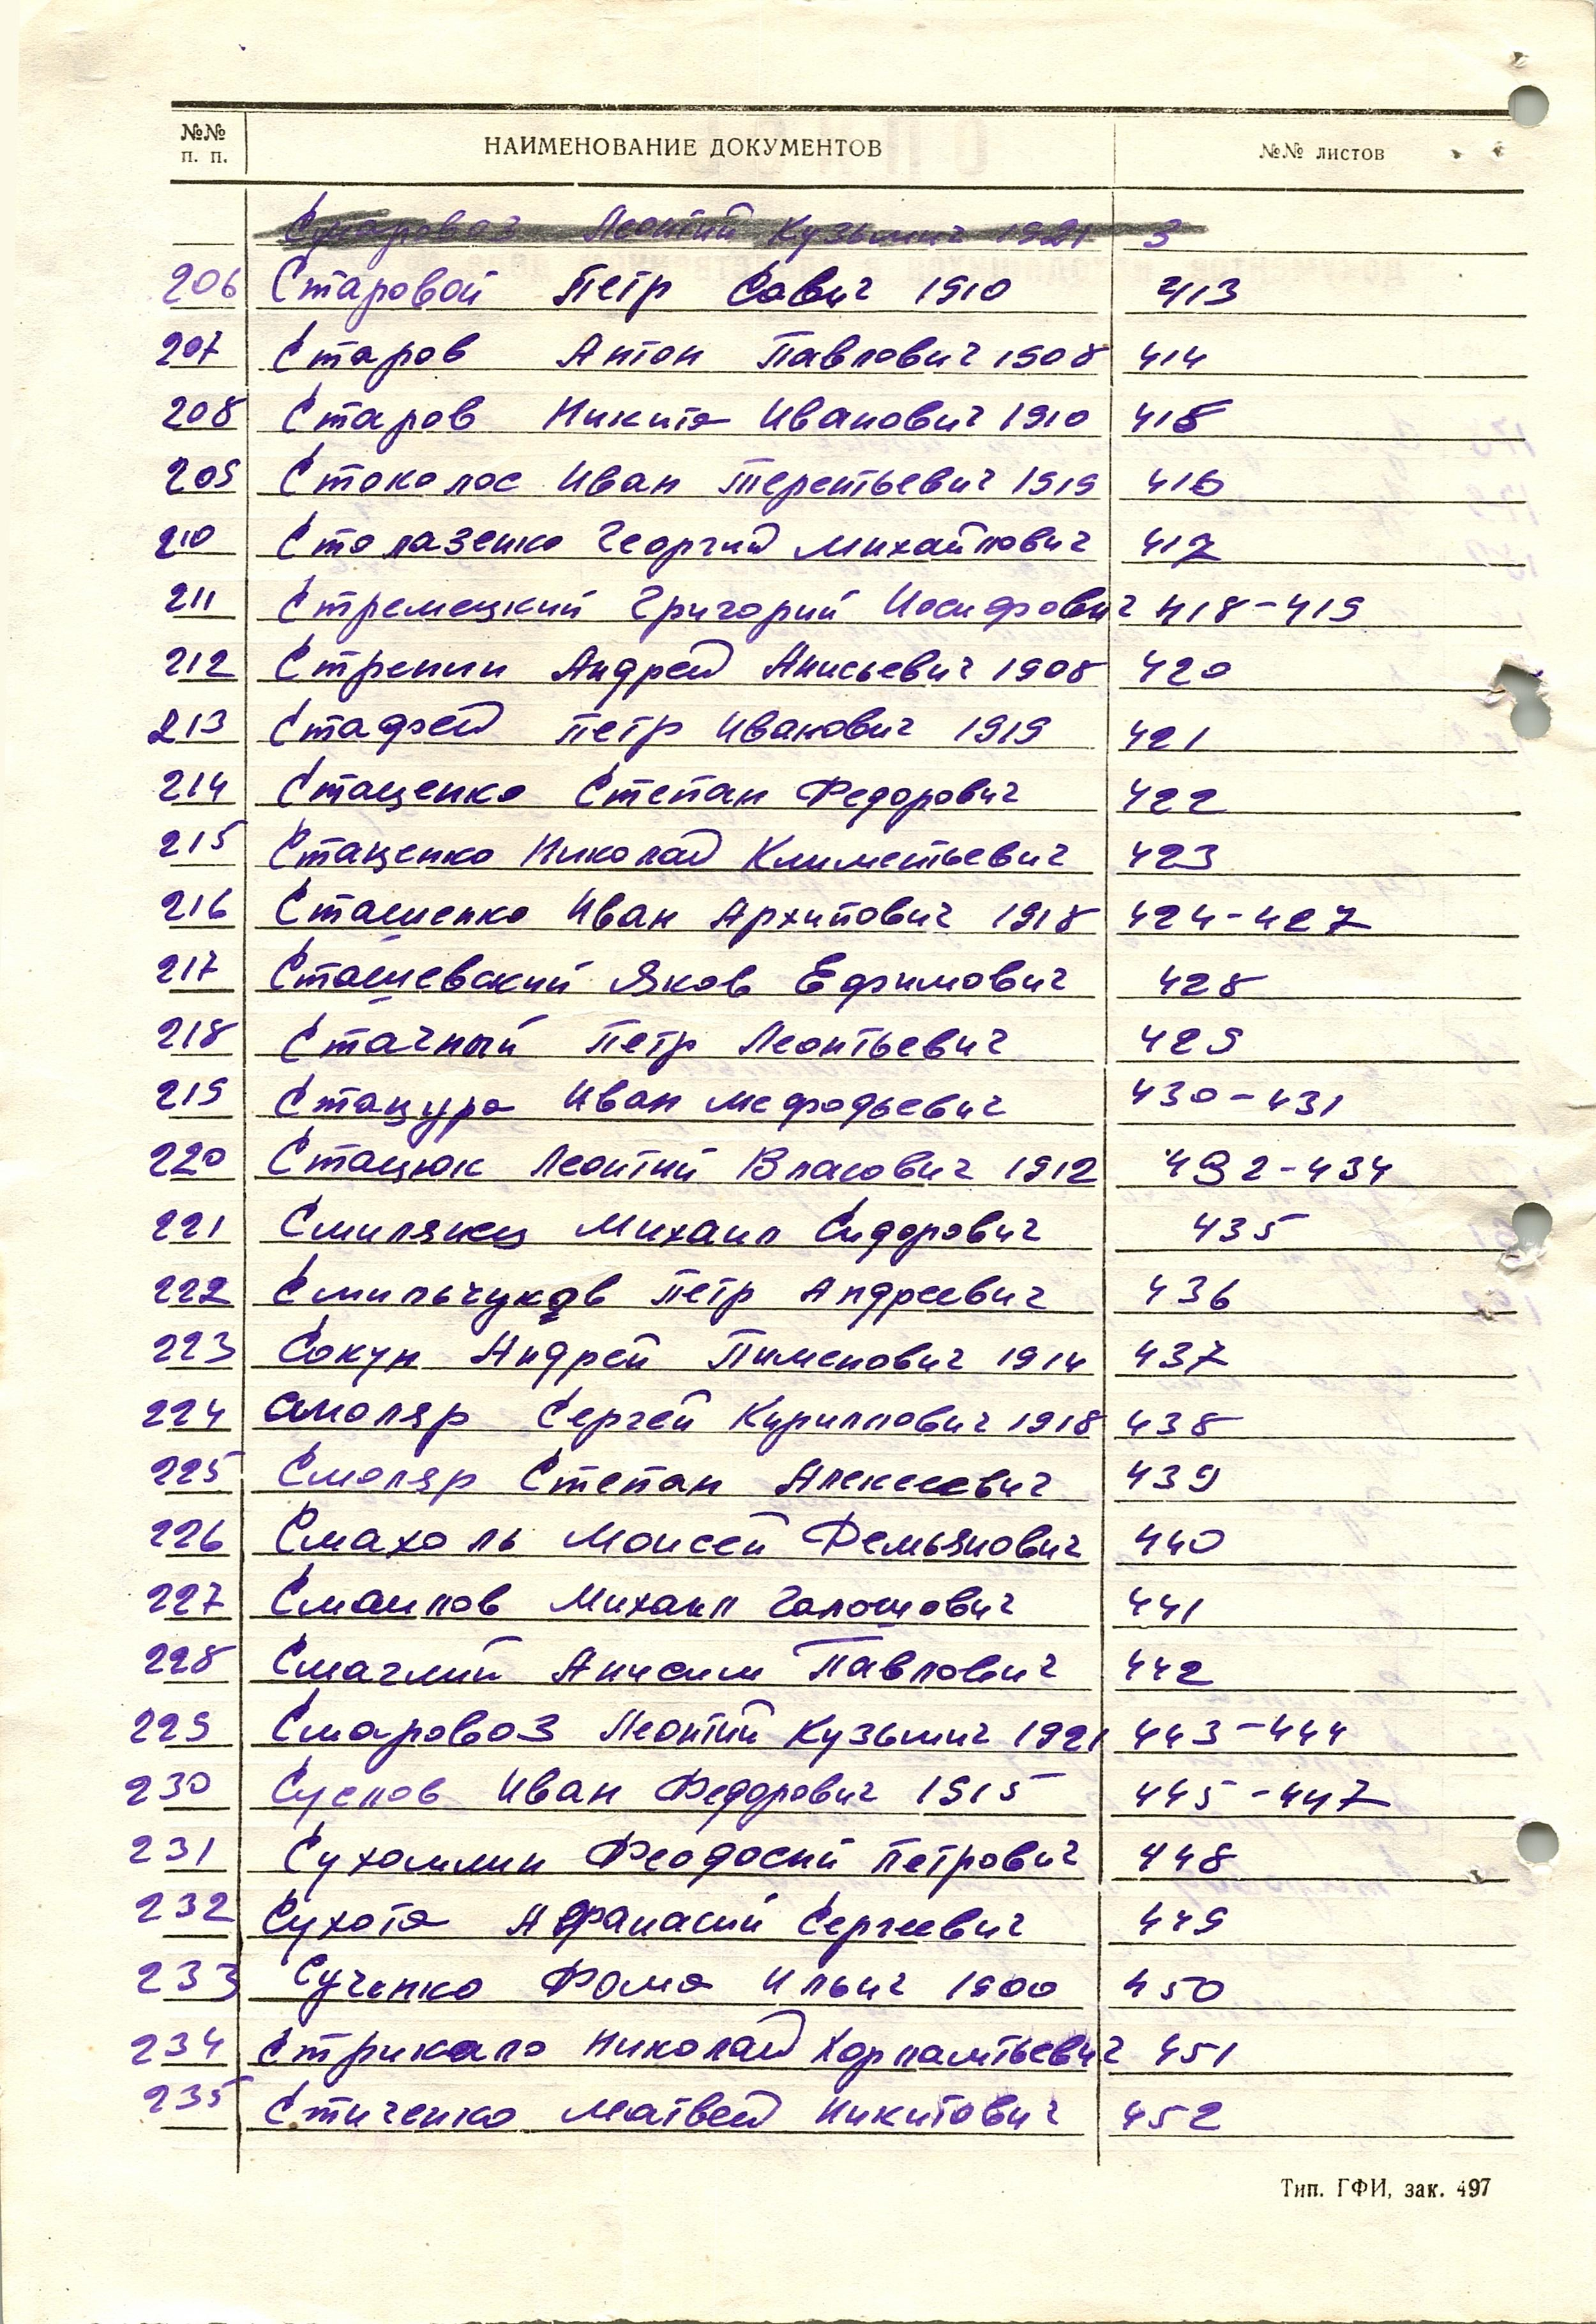 №№ п. п. НАИМЕНОВАНИЕ ДОКУМЕНТОВ №№ листов
Смаровоз Леонтий Кузьмич 1921 3
206 Старовой Петр Савич 1910 413
207 Старов Антон Павлович 1908 414
208 Старов Никита Иванович 1910 415
209 Стоколос Иван Терентьевич 1919 416
210 Столазенко Георгий Михайлович 417
211 Стремецкий Григорий Иосифович 418-419
212 Стренин Андрей Анисьевич 1908 420
213 Стафей Петр Иванович 1919 421
214 Стаценко Степан Федорович 422
215 Стаценко Николай Климетьевич 423
216 Сташенко Иван Архипович 1918 424-427
217 Сташевский Яков Ефимович 428
218 Стачный Петр Леонтьевич 429
219 Стацура Иван Мефодьевич 430-431
220 Стацюк Леонтий Власович 1912 432-434
221 Смилянец Михаил Сидорович 435
222 Смильчуков Петр Андреевич 436
223 Сокун Андрей Пименович 1914 437
224 Смоляр Сергей Кириллович 1918 438
225 Смоляр Степан Алексеевич 439
226 Смахоль Моисей Демьянович 440
227 Смаилов Михаил 441
228 Смаглий Анисим Павлович 442
229 Смаровоз Леонтий Кузьмич 1921 443-444
230 Суслов Иван Федорович 1915 445-447
231 Сухомлин Феодосий Петрович 448
232 Сухота Афанасий Сергеевич 449
233 Сученко Фома Ильич 1900 450
234 Стрикало Николай Харлантьевич 451
235 Стиченко Матвей Никитович 452
Тип. ГФИ, зак. 497